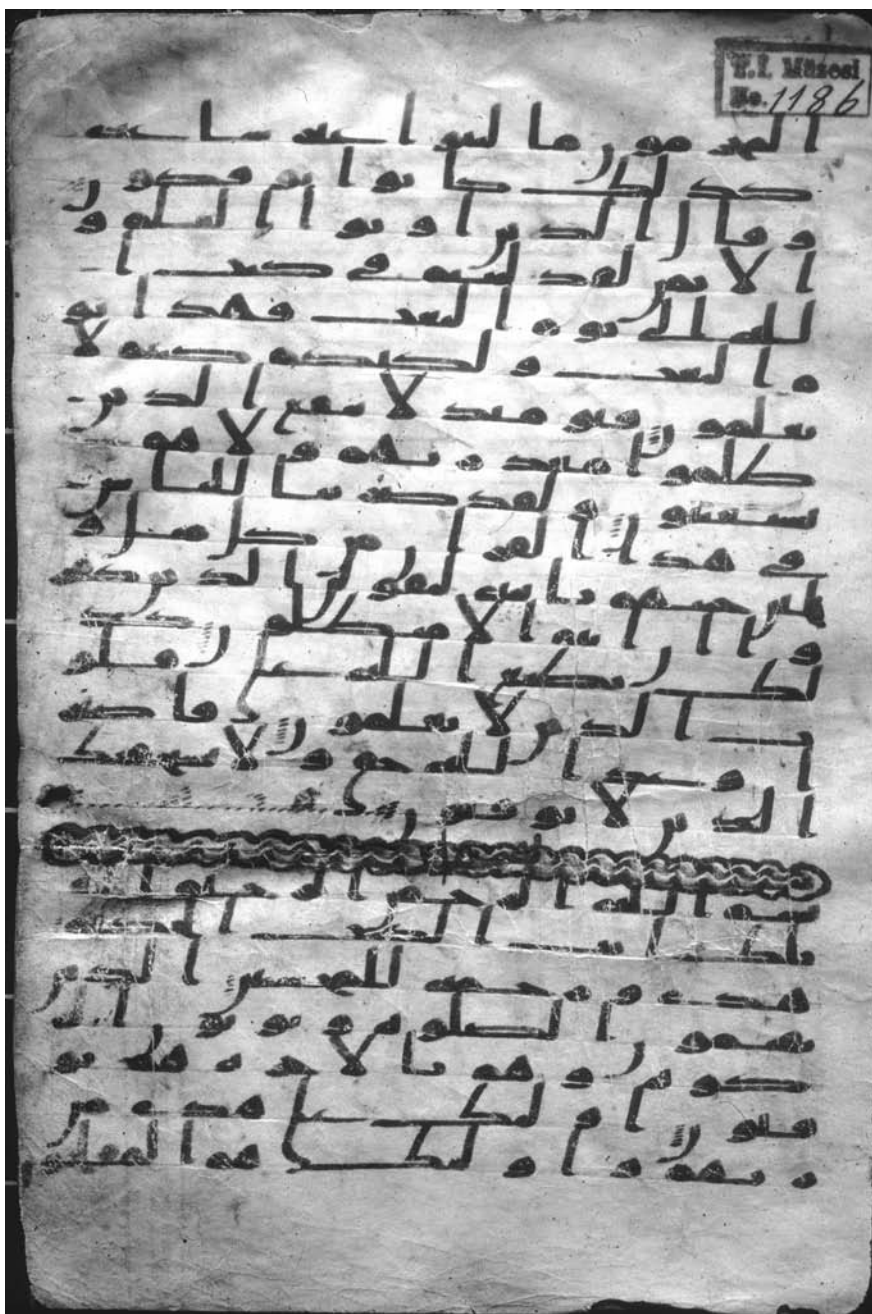 T.I. Müzesi
No. 1186
المجرمون ما لبثوا غير ساعة
كذلك كانوا يوفكون
وقال الذين اوتوا العلم و
الايمن لقد لبثتم في كتب ا
لله الى يوم البعث فهذا يو
م البعث ولكنكم كنتم لا
تعلمون فيومئذ لا ينفع الذين
ظلموا معذرتهم ولا هم
يستعتبون ولقد ضربنا للناس
في هذا القران من كل مثل و
لئن جئتهم باية ليقولن الذين
كفروا ان انتم الا مبطلون كذ
لك يطبع الله على قلو
ب الذين لا يعلمون فاصبر
ان وعد الله حق ولا يستخفنك
الذين لا يوقنون
بسم الله الرحمن الرحيم
الم تلك ايت الكتب الحكيم
هدى ورحمة للمحسنين الذين
يقيمون الصلوة ويوتون
الزكوة وهم بالاخرة هم يو
قنون اولئك على هدى من
ربهم واولئك هم المفلحون